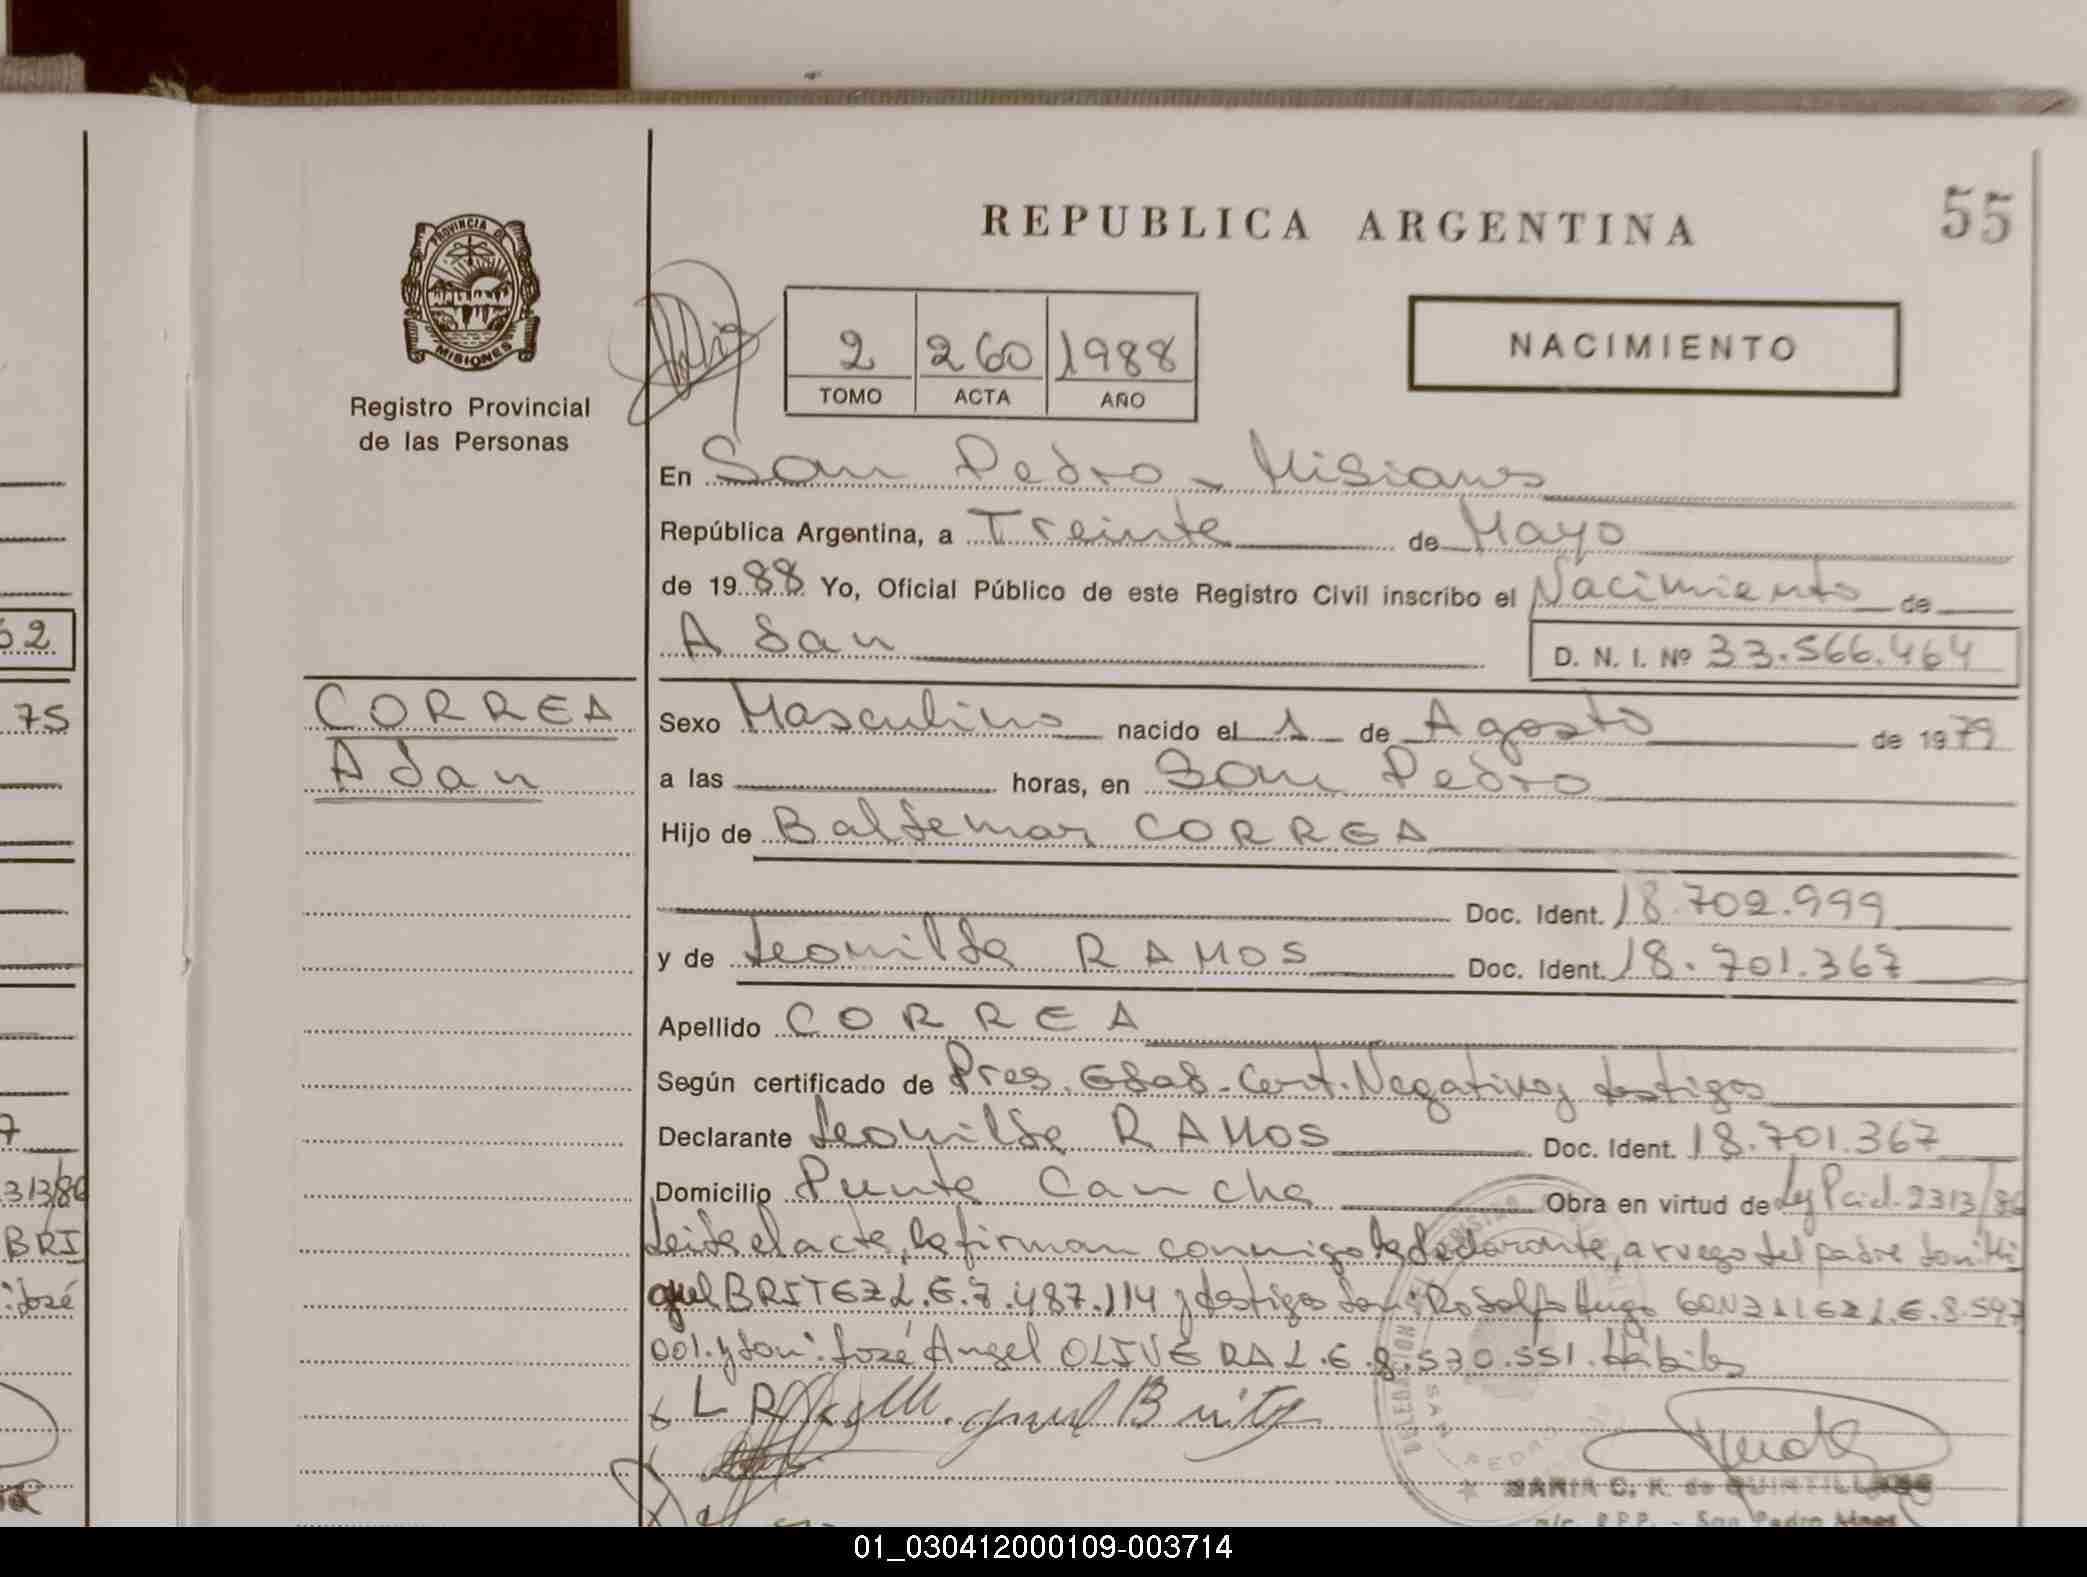 55
REPUBLICA ARGENTINA
PROVINCIA DE
MISIONES
NACIMIENTO
2 260 1988
TOMO ACTA AÑO
Registro Provincial
de las Personas
En San Pedro - Misiones
República Argentina, a Treinta de Mayo
de 1988 Yo, Oficial Público de este Registro Civil inscribo el Nacimiento de
Adan
D. N. I. Nº 33.566.464
CORREA
Adan
Sexo Masculino nacido el 1 de Agosto de 1979
a las horas, en San Pedro
Hijo de Baldemar CORREA
Doc. Ident. 18.702.999
y de Leonilda RAMOS Doc. Ident. 18.701.367
Apellido CORREA
Según certificado de Pres. Edad. Cert. Negativo y testigos
Declarante Leonilda RAMOS Doc. Ident. 18.701.367
Domicilio Punta Cancha Obra en virtud de Ley Pcial. 2313/86
Leida el acta, la firman conmigo la declarante, a ruego del padre don: Mi
guel BRITEZ L.E. 7.487.114 y testigos don: Rodolfo Hugo GONZALEZ L.E. 8.597
001. y don: José Angel OLIVERA L.E. 8.570.551. Hábiles
L R Miguel Britez
DELEGACION
SAN PEDRO
MARIA C. R. de QUINTILLANO
a/c. R.P.P. - San Pedro Mnes.
62
75
7
313/86
BRI
: José
01_030412000109-003714